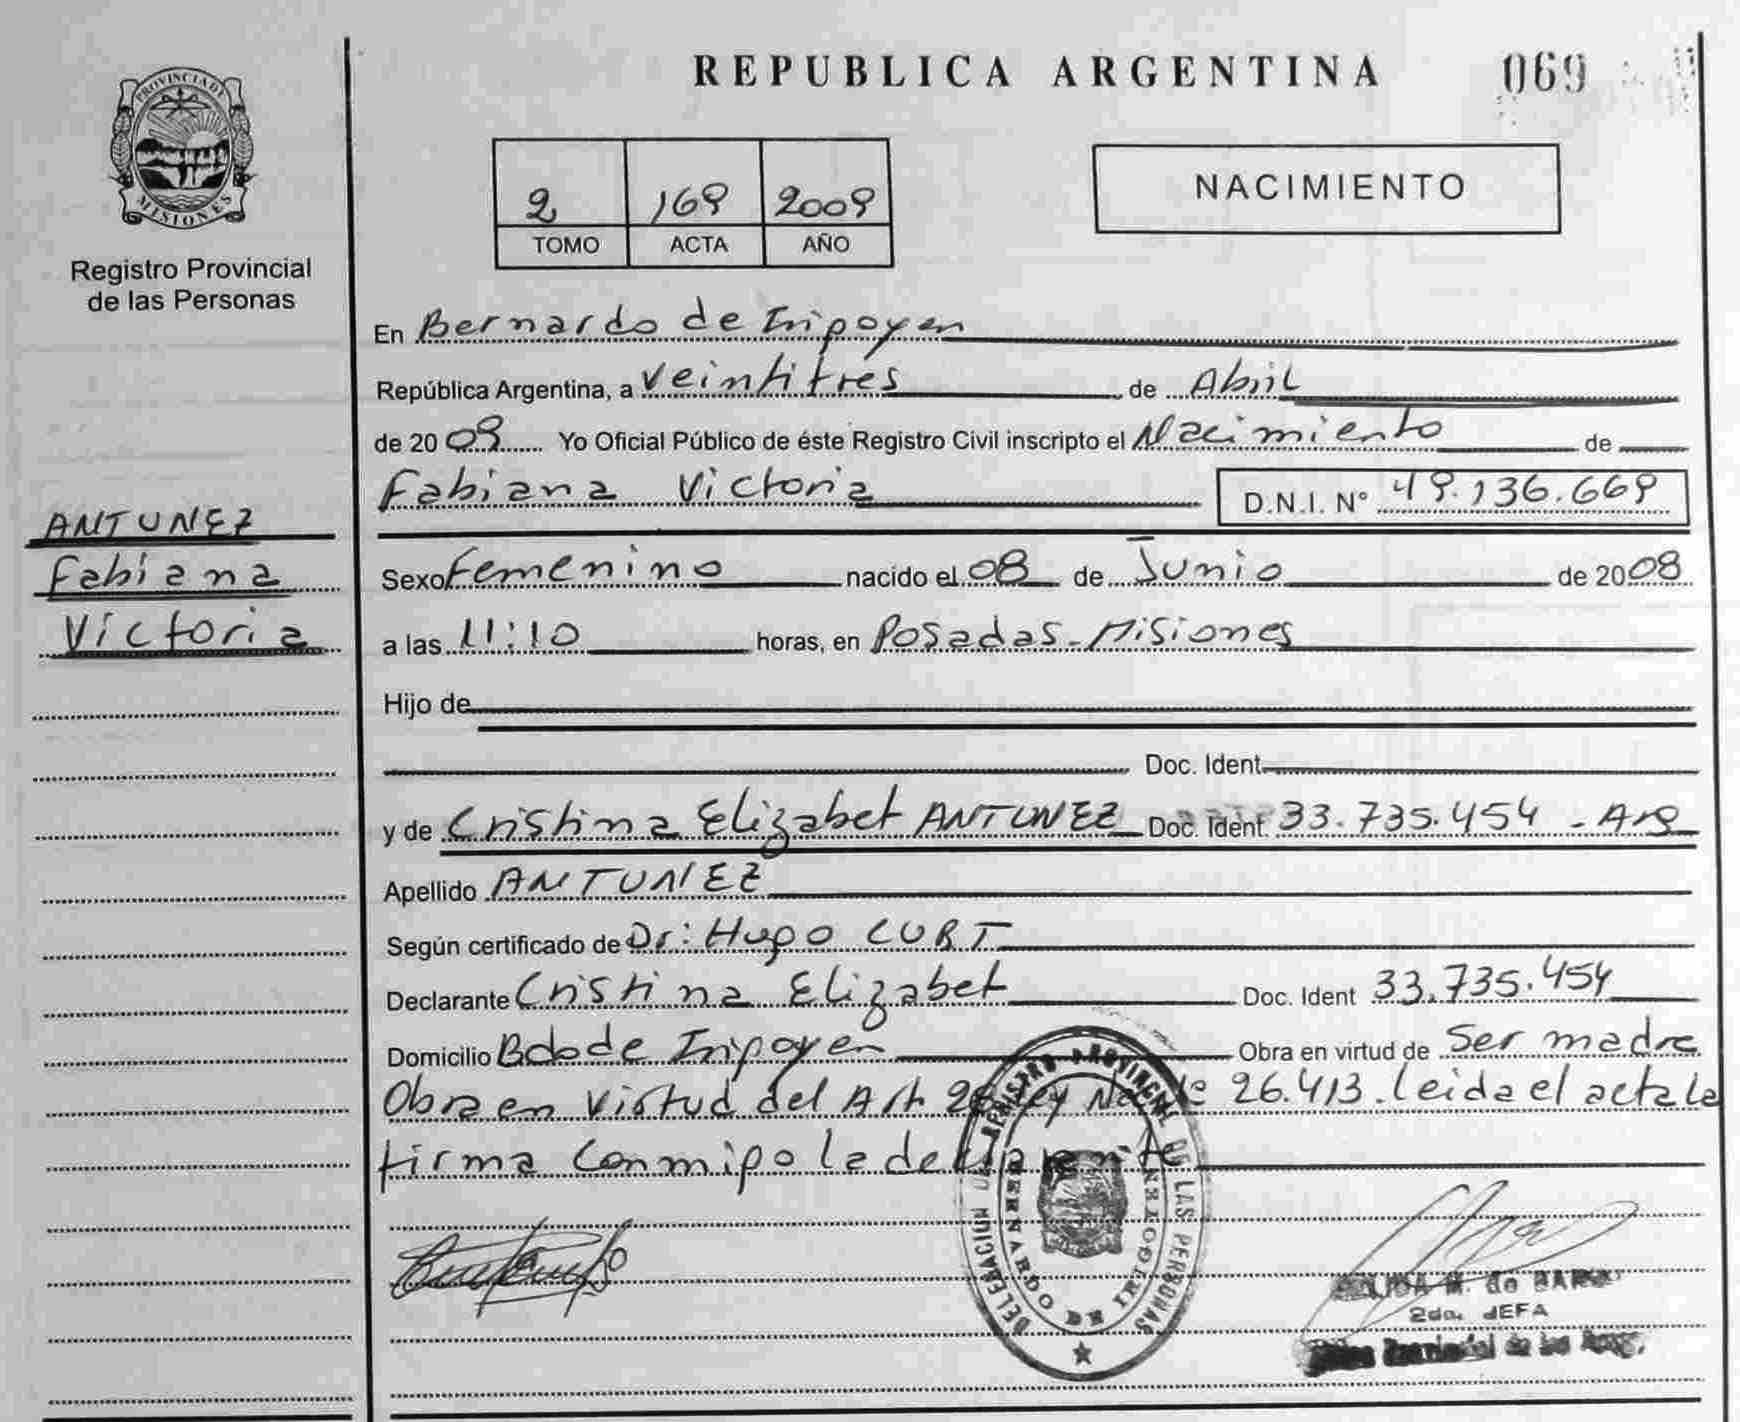 PROVINCIA DE
MISIONES
Registro Provincial
de las Personas
REPUBLICA ARGENTINA 069
2 169 2009
TOMO ACTA AÑO
NACIMIENTO
En Bernardo de Irigoyen
República Argentina, a veintitres de Abril
de 2009 Yo Oficial Público de éste Registro Civil inscripto el Nacimiento de
Fabiana Victoria D.N.I. Nº 49.136.669
ANTUNEZ
Fabiana
Victoria
Sexo Femenino nacido el 08 de Junio de 2008
a las 11:10 horas, en Posadas-Misiones
Hijo de
Doc. Ident.
y de Cristina Elizabet ANTUNEZ Doc. Ident. 33.735.454 - Arg
Apellido ANTUNEZ
Según certificado de Dr: Hugo CURT
Declarante Cristina Elizabet Doc. Ident 33.735.454
Domicilio Bdo de Irigoyen Obra en virtud de Ser madre
Obra en virtud del Art. 28 Ley de 26.413. leida el acta la
firma conmigo la
DELEGACION REGISTRO PROVINCIAL DE LAS PERSONAS
BERNARDO DE IRIGOYEN
M. de
2da. JEFA
Provincial de las